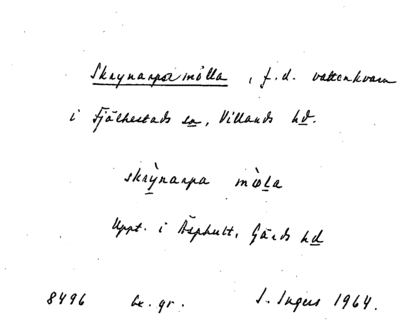 Skrynarpa mölla, f.d. vattenkvarn
i Fjälkestads sn, Villands hd.
skrỳnarpa mö̀la
Uppt. i Äsphult, Gärds hd
8496 Ex. gr. I. Ingers 1964.